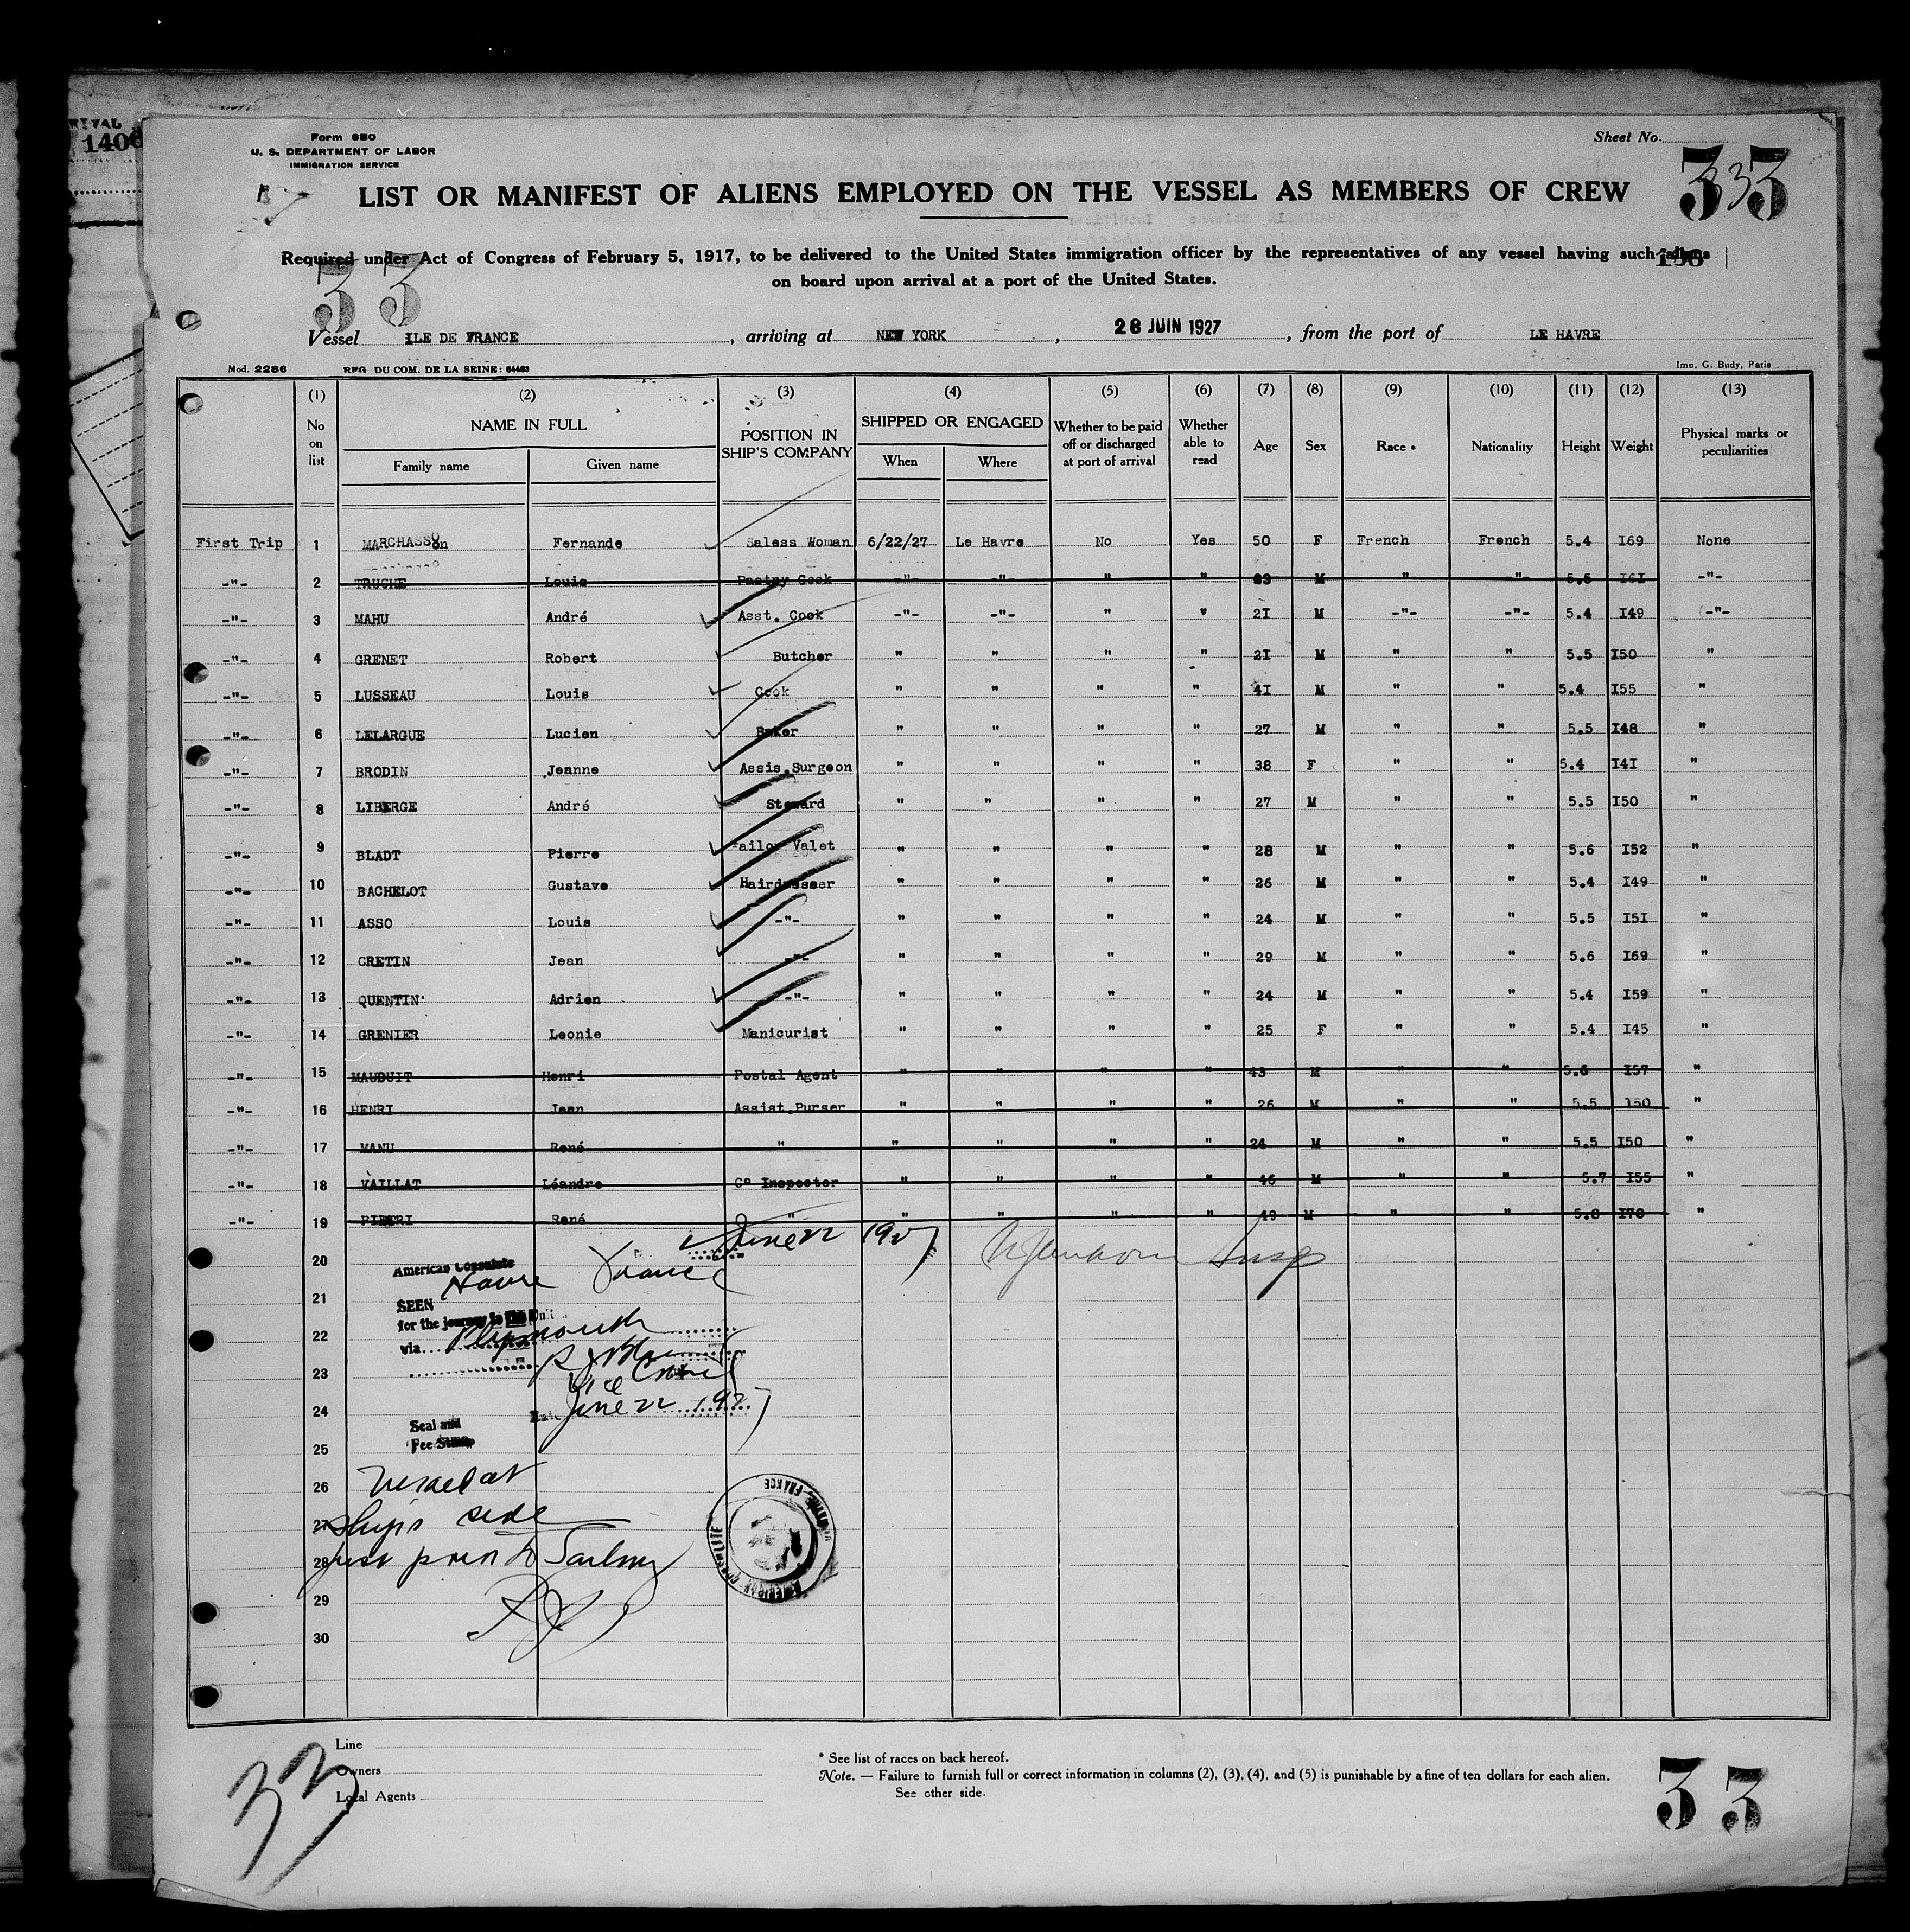 RIVAL
1406
Form 680
U. S. DEPARTMENT OF LABOR
IMMIGRATION SERVICE
Sheet No.
33
LIST OR MANIFEST OF ALIENS EMPLOYED ON THE VESSEL AS MEMBERS OF CREW
Required under Act of Congress of February 5, 1917, to be delivered to the United States immigration officer by the representatives of any vessel having such aliens
on board upon arrival at a port of the United States.
33
Vessel ILE DE FRANCE, arriving at NEW YORK, 28 JUIN 1927, from the port of LE HAVRE
Mod. 2286 REG. DU COM. DE LA SEINE: 64483 Imp. G. Budy, Paris
(1) (2) (3) (4) (5) (6) (7) (8) (9) (10) (11) (12) (13)
No on list NAME IN FULL Family name Given name POSITION IN SHIP'S COMPANY SHIPPED OR ENGAGED When Where Whether to be paid off or discharged at port of arrival Whether able to read Age Sex Race * Nationality Height Weight Physical marks or peculiarities
First Trip 1 MARCHASSON Fernande Saless Woman 6/22/27 Le Havre No Yes 50 F French French 5.4 I69 None
-"- 2 TRUCHE Louis Pastry Cook -"- " " " M -"- -"- 5.5 I6I -"-
-"- 3 MAHU André Asst. Cook -"- -"- " " 2I M -"- -"- 5.4 I49 -"-
-"- 4 GRENET Robert Butcher " " " " 2I M " " 5.5 I50 "
-"- 5 LUSSEAU Louis Cook " " " " 4I M " " 5.4 I55 "
-"- 6 LELARGUE Lucien Baker " " " " 27 M " " 5.5 I48 "
-"- 7 BRODIN Jeanne Assis.Surgeon " " " " 38 F " " 5.4 I4I "
-"- 8 LIBERGE André Steward " " " " 27 M " " 5.5 I50 "
-"- 9 BLADT Pierre Tailor Valet " " " " 28 M " " 5.6 I52 "
-"- 10 BACHELOT Gustave Hairdresser " " " " 26 M " " 5.4 I49 "
-"- 11 ASSO Louis -"- " " " " 24 M " " 5.5 I5I "
-"- 12 CRETIN Jean -"- " " " " 29 M " " 5.6 I69 "
-"- 13 QUENTIN Adrien -"- " " " " 24 M " " 5.4 I59 "
-"- 14 GRENIER Leonie Manicurist " " " " 25 F " " 5.4 I45 "
-"- 15 MAUDUIT Henri Postal Agent " " " " 43 M " " 5.6 I57 "
-"- 16 HENRI Jean Assist.Purser " " " " 26 M " " 5.5 I50 "
-"- 17 MANU René " " " " " 24 M " " 5.5 I50 "
-"- 18 VAILLAT Léandre Co Inspector " " " " 46 M " " 5.7 I55 "
-"- 19 PIETRI René " " " " " 49 M " " 5.8 I70 "
June 22 1927
20 American Consulate
Havre France
21 SEEN
for the journey to the Unit
22 via Plymouth
23 Vice Consul
24 June 22 1927
Seal and
25 Fee Stamp
26 Visaed at
27 ships side
28 just prior to Sailing
29
30
AMERICAN CONSULATE FRANCE
Line
Owners
Local Agents
33
* See list of races on back hereof.
Note. — Failure to furnish full or correct information in columns (2), (3), (4), and (5) is punishable by a fine of ten dollars for each alien.
See other side.
33